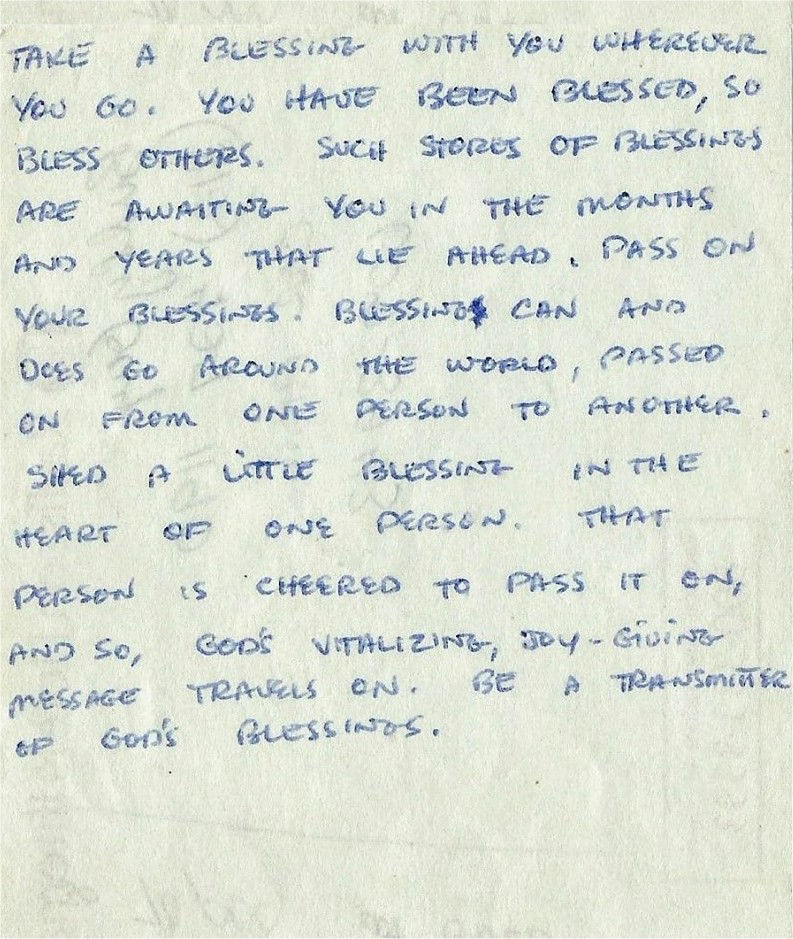 TAKE A BLESSING WITH YOU WHEREVER
YOU GO. YOU HAVE BEEN BLESSED, SO
BLESS OTHERS. SUCH STORES OF BLESSINGS
ARE AWAITING YOU IN THE MONTHS
AND YEARS THAT LIE AHEAD. PASS ON
YOUR BLESSINGS. BLESSING CAN AND
DOES GO AROUND THE WORLD, PASSED
ON FROM ONE PERSON TO ANOTHER.
SHED A LITTLE BLESSING IN THE
HEART OF ONE PERSON. THAT
PERSON IS CHEERED TO PASS IT ON,
AND SO, GOD'S VITALIZING, JOY-GIVING
MESSAGE TRAVELS ON. BE A TRANSMITTER
OF GOD'S BLESSINGS.